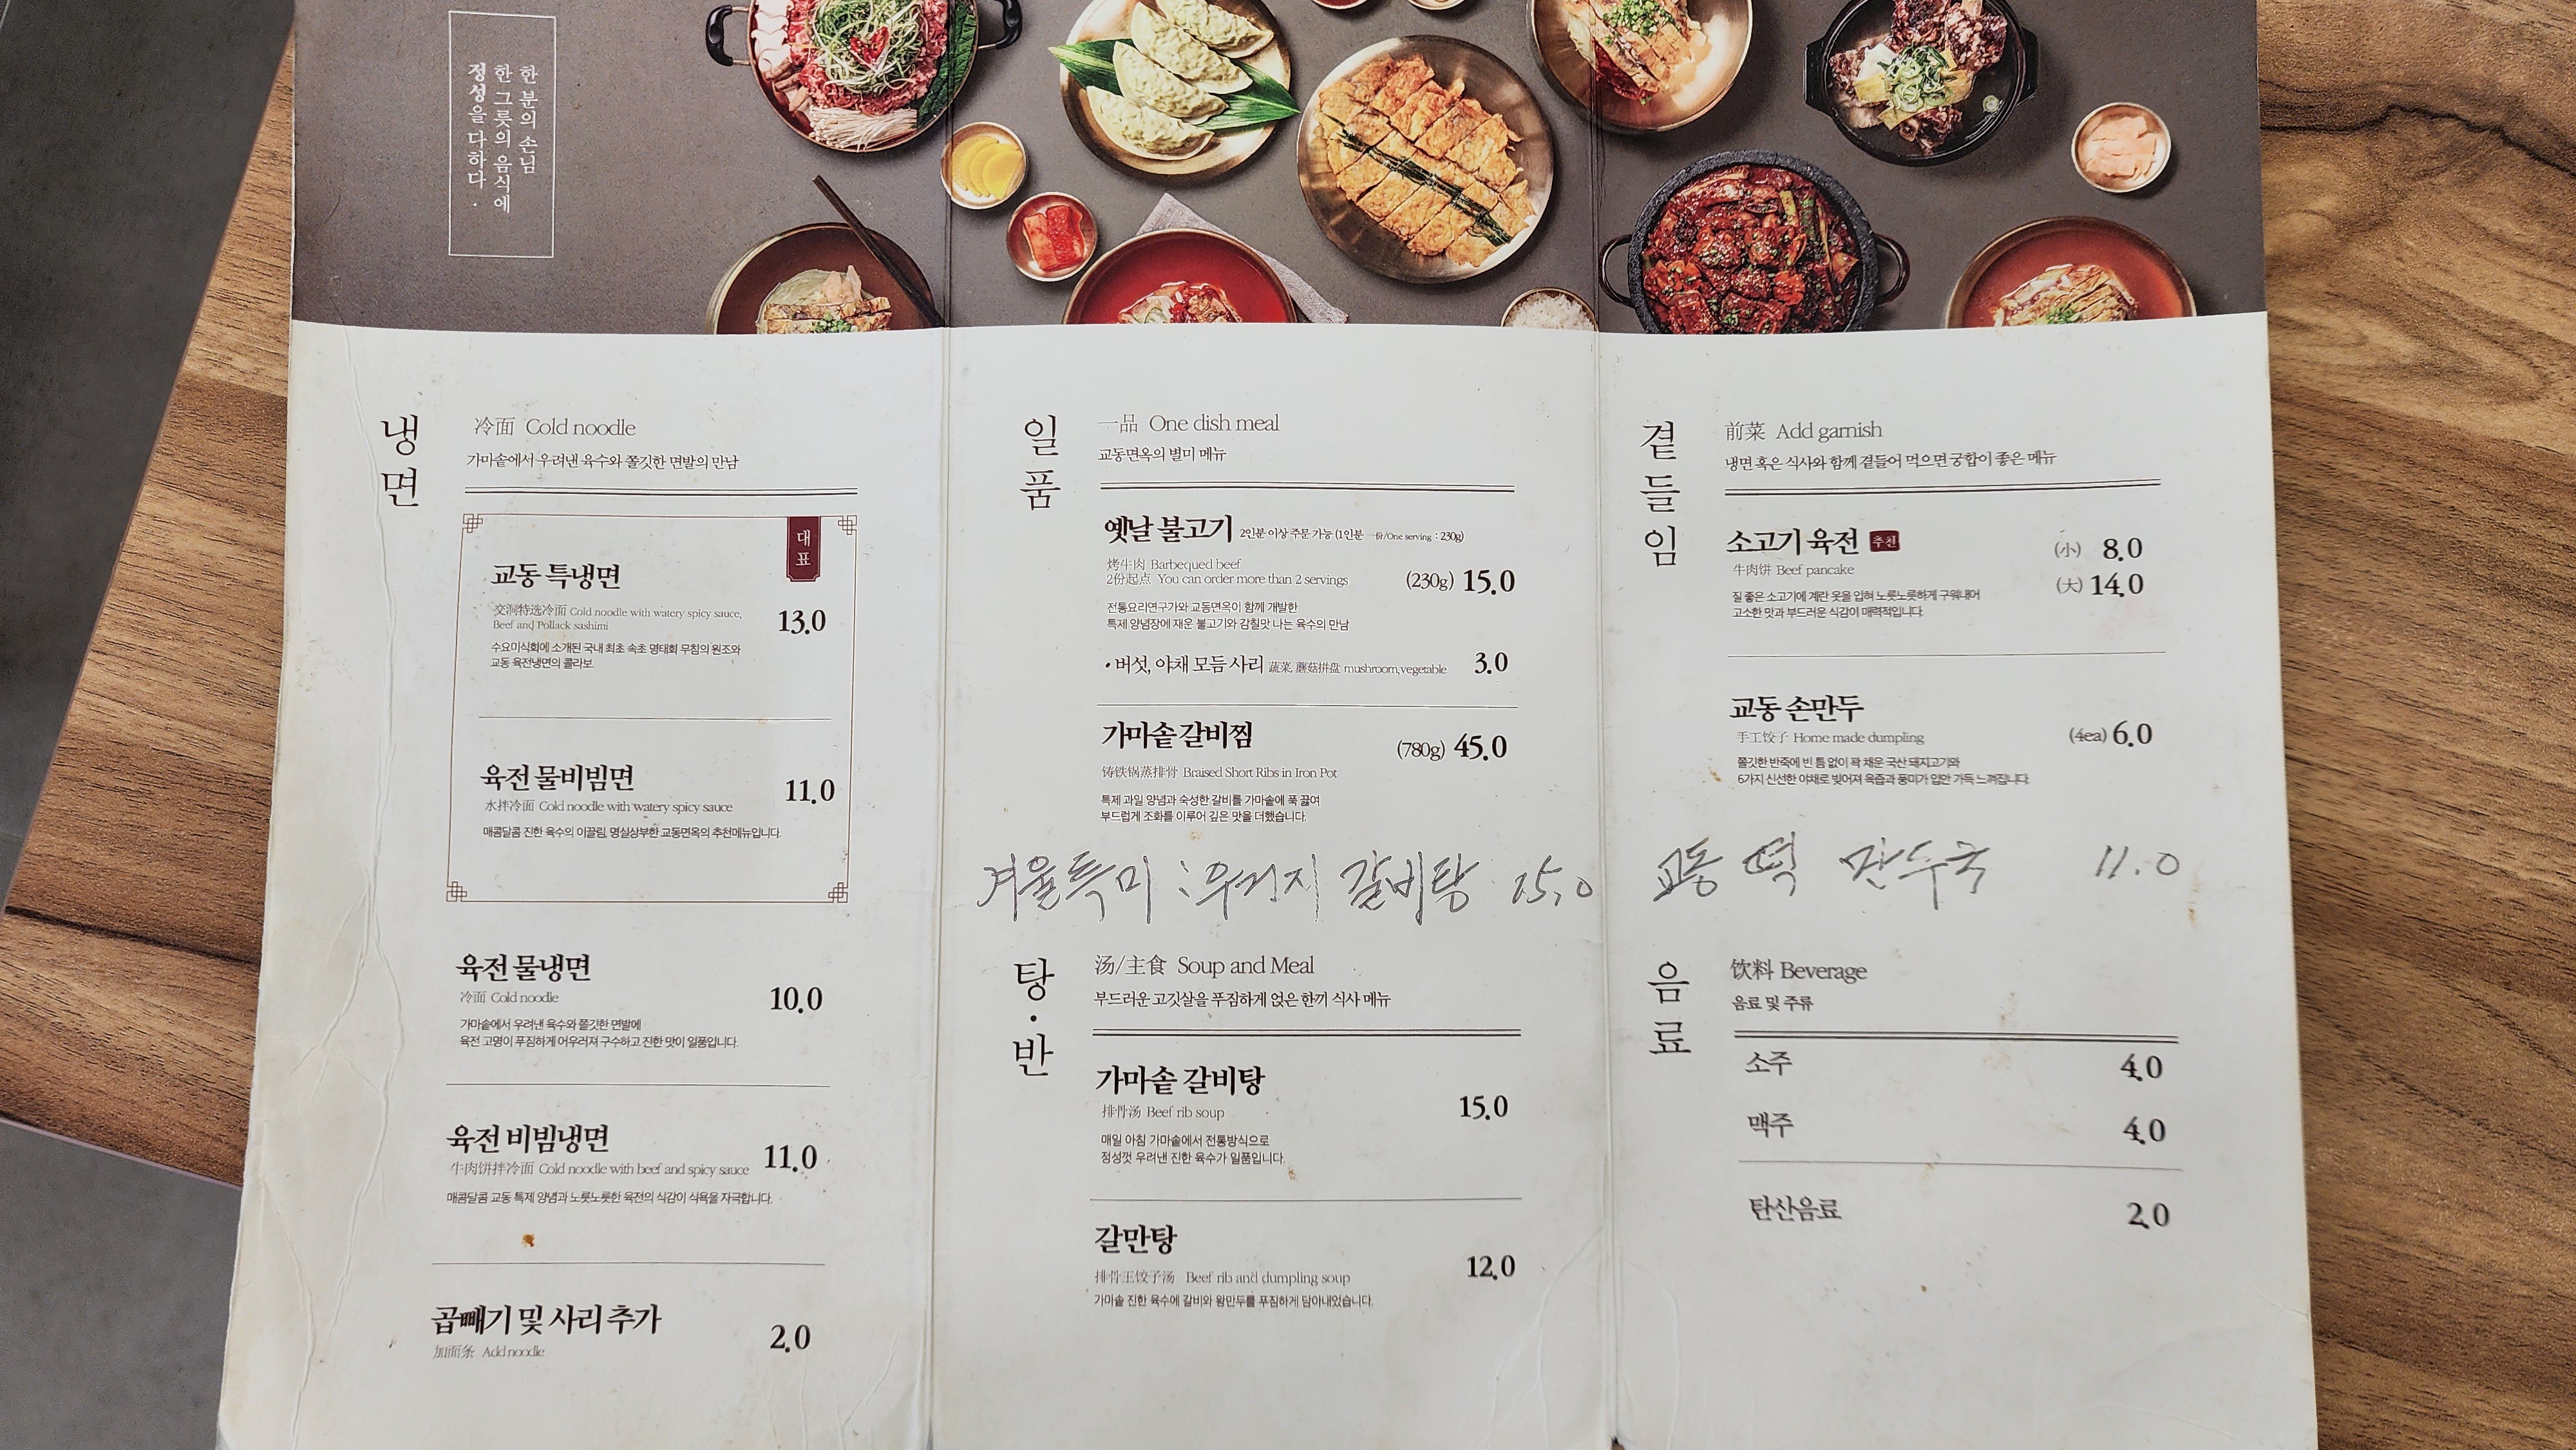 한 분의 손님
한 그릇의 음식에
정성을 다하다.
냉면
冷面 Cold noodle
가마솥에서 우려낸 육수와 쫄깃한 면발의 만남
대표
교동 특냉면
交洞特选冷面 Cold noodle with watery spicy sauce,
Beef and Pollack sashimi
13.0
수요미식회에 소개된 국내 최초 속초 명태회 무침의 원조와
교동 육전냉면의 콜라보.
육전 물비빔면
水拌冷面 Cold noodle with watery spicy sauce
11.0
매콤달콤 진한 육수의 이끌림, 명실상부한 교동면옥의 추천메뉴입니다.
육전 물냉면
冷面 Cold noodle
10.0
가마솥에서 우려낸 육수와 쫄깃한 면발에
육전 고명이 푸짐하게 어우러져 구수하고 진한 맛이 일품입니다.
육전 비빔냉면
牛肉饼拌冷面 Cold noodle with beef and spicy sauce
11.0
매콤달콤 교동 특제 양념과 노릇노릇한 육전의 식감이 식욕을 자극합니다.
곱빼기 및 사리 추가
加面条 Add noodle
2.0
일품
一品 One dish meal
교동면옥의 별미 메뉴
옛날 불고기 2인분 이상 주문 가능 (1인분 一份/One serving : 230g)
烤牛肉 Barbequed beef
2份起点 You can order more than 2 servings
(230g) 15.0
전통요리연구가와 교동면옥이 함께 개발한
특제 양념장에 재운 불고기와 감칠맛 나는 육수의 만남
• 버섯, 야채 모듬 사리 蔬菜, 蘑菇拼盘 mushroom,vegetable 3.0
가마솥 갈비찜
铸铁锅蒸排骨 Braised Short Ribs in Iron Pot
(780g) 45.0
특제 과일 양념과 숙성한 갈비를 가마솥에 푹 끓여
부드럽게 조화를 이루어 깊은 맛을 더했습니다.
겨울특미 : 우거지 갈비탕 15,0
탕·반
汤/主食 Soup and Meal
부드러운 고깃살을 푸짐하게 얹은 한끼 식사 메뉴
가마솥 갈비탕
排骨汤 Beef rib soup
15.0
매일 아침 가마솥에서 전통방식으로
정성껏 우려낸 진한 육수가 일품입니다.
갈만탕
排骨王饺子汤 Beef rib and dumpling soup
12.0
가마솥 진한 육수에 갈비와 왕만두를 푸짐하게 담아내었습니다.
곁들임
前菜 Add garnish
냉면 혹은 식사와 함께 곁들어 먹으면 궁합이 좋은 메뉴
소고기 육전 추천
牛肉饼 Beef pancake
(小) 8.0
(大) 14.0
질 좋은 소고기에 계란 옷을 입혀 노릇노릇하게 구워내어
고소한 맛과 부드러운 식감이 매력적입니다.
교동 손만두
手工饺子 Home made dumpling
(4ea) 6.0
쫄깃한 반죽에 빈 틈 없이 꽉 채운 국산 돼지고기와
6가지 신선한 야채로 빚어져 육즙과 풍미가 입안 가득 느껴집니다.
교동 떡 만두국 11.0
음료
饮料 Beverage
음료 및 주류
소주 4.0
맥주 4.0
탄산음료 2.0